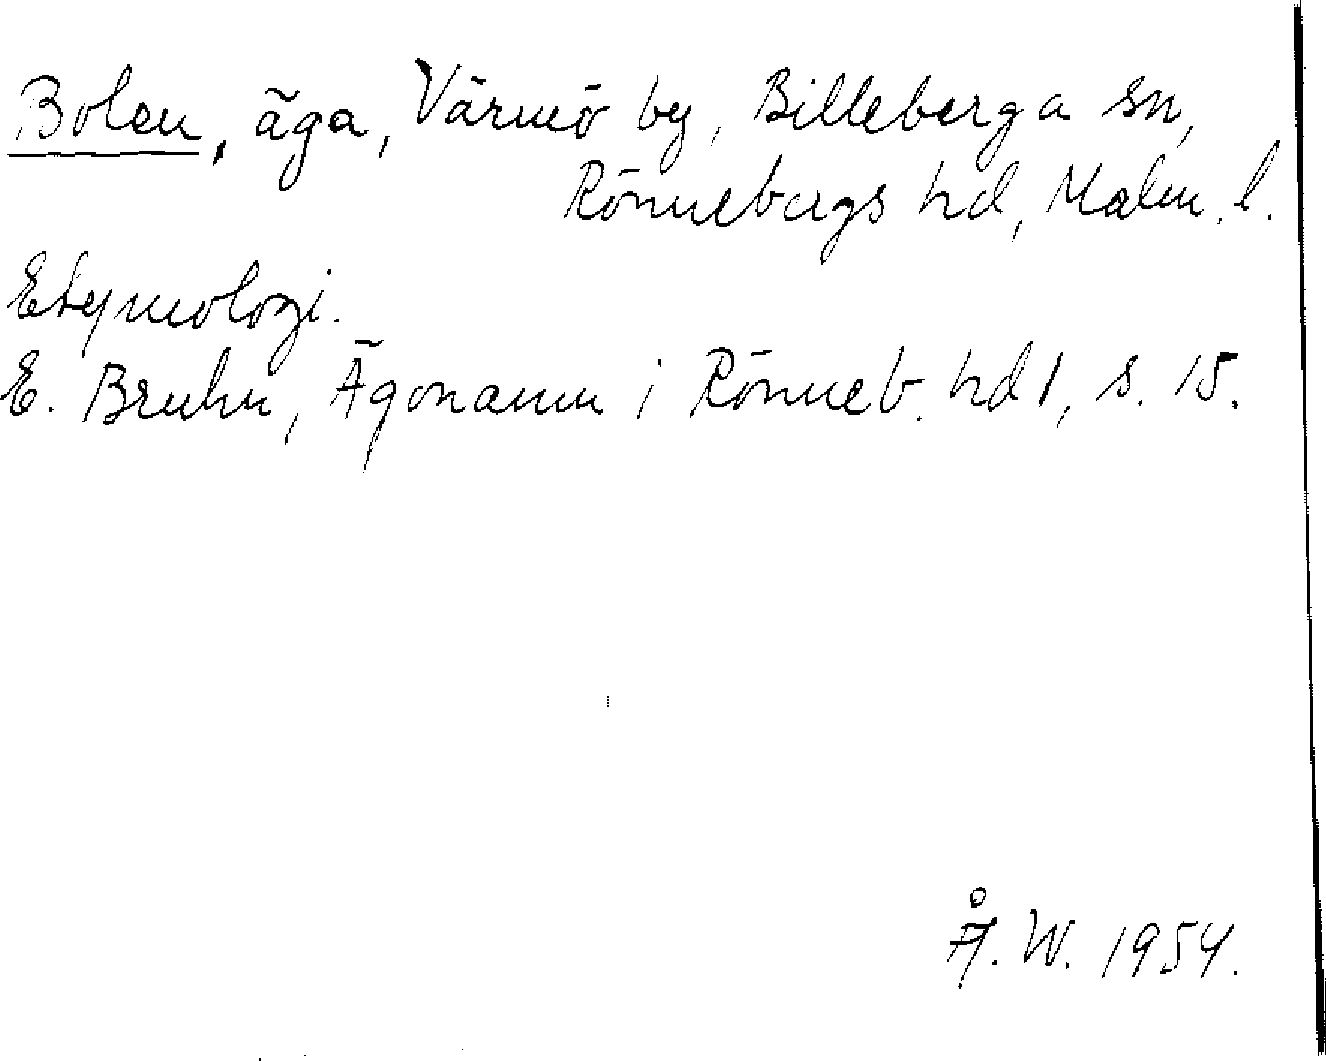 Bolen, äga, Värmö by, Billeberga sn,
Rönnebergs hd, Malm. l.
Etymologi.
E. Bruhn, Ägonamn i Rönneb. hd 1, s. 15.
Å. W. 1954.